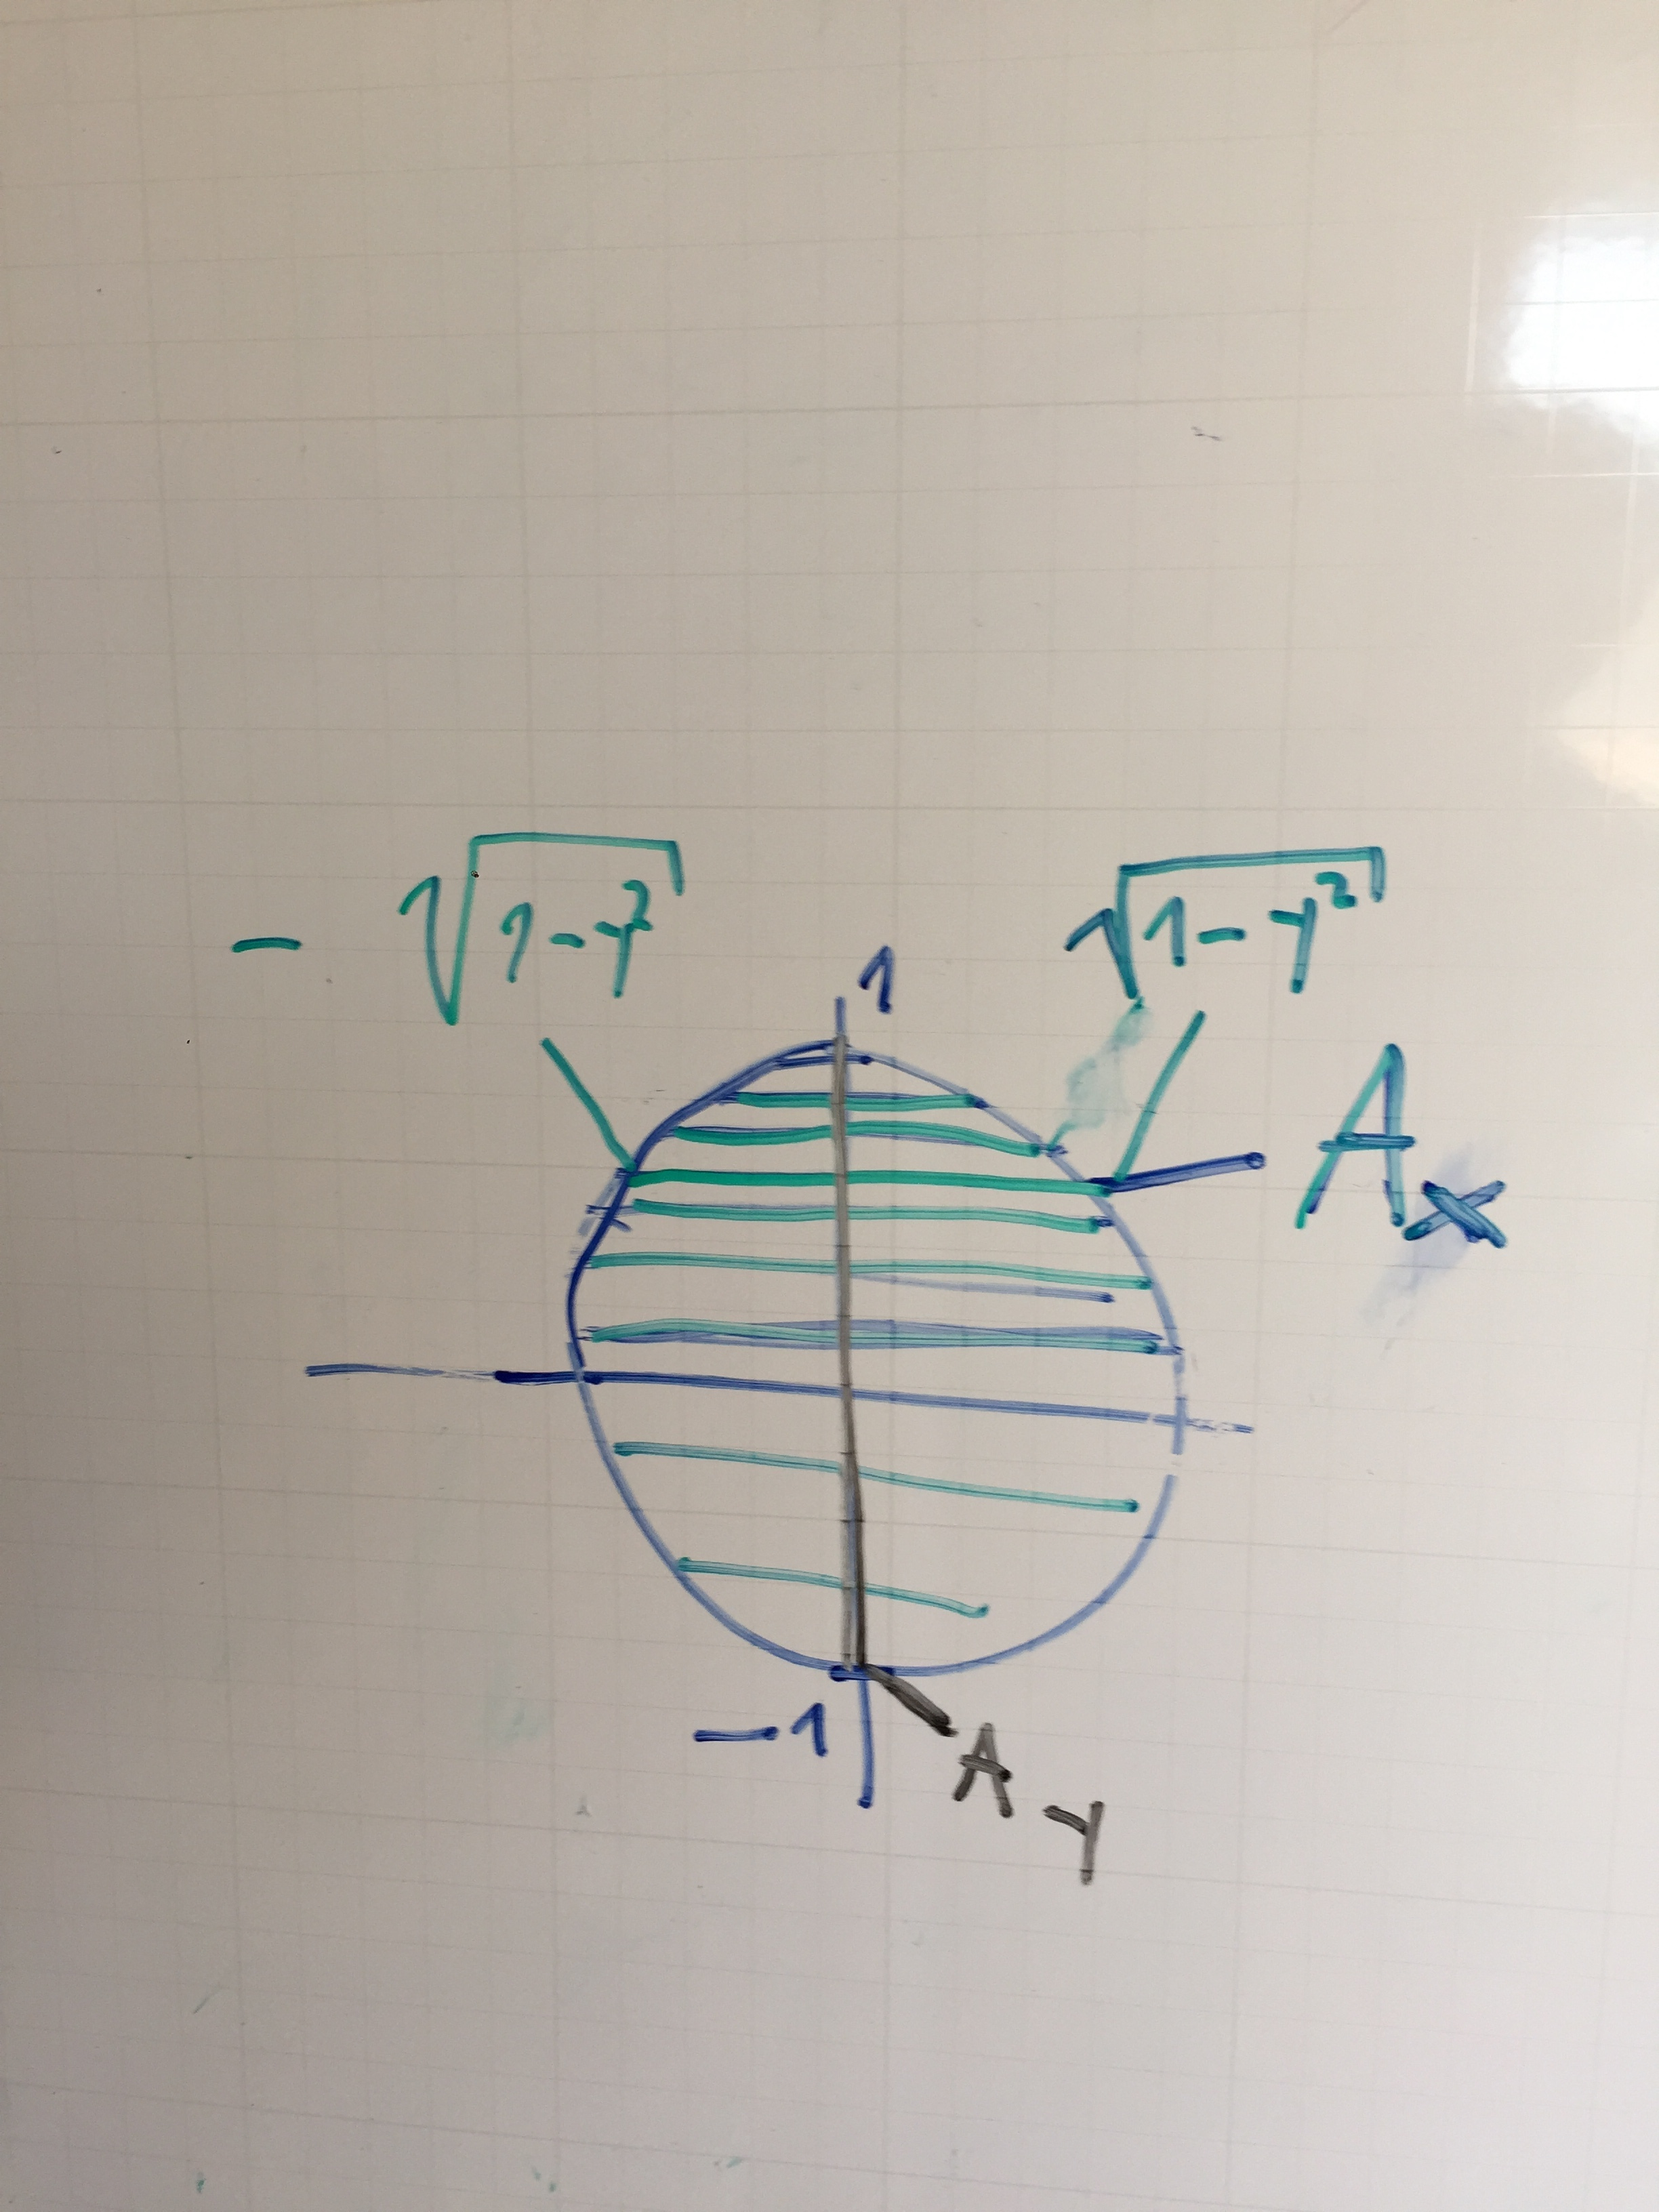 - √1-y²
√1-y²
1
Aₓ
-1
A y